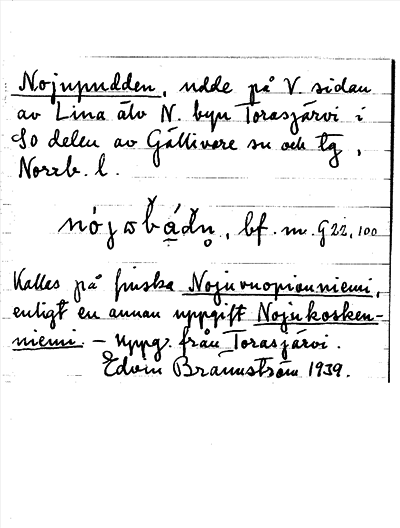 Nojupudden, udde på V. sidan
av Lina älv N. byn Torasjärvi i
SO delen av Gällivare sn och tg,
Norrb. l.
bf. m. G 22, 100
Kallas på finska Nojuvuopionniemi,
enligt en annan uppgift Nojukosken-
niemi. – Uppg. från Torasjärvi.
Edvin Brännström 1939.